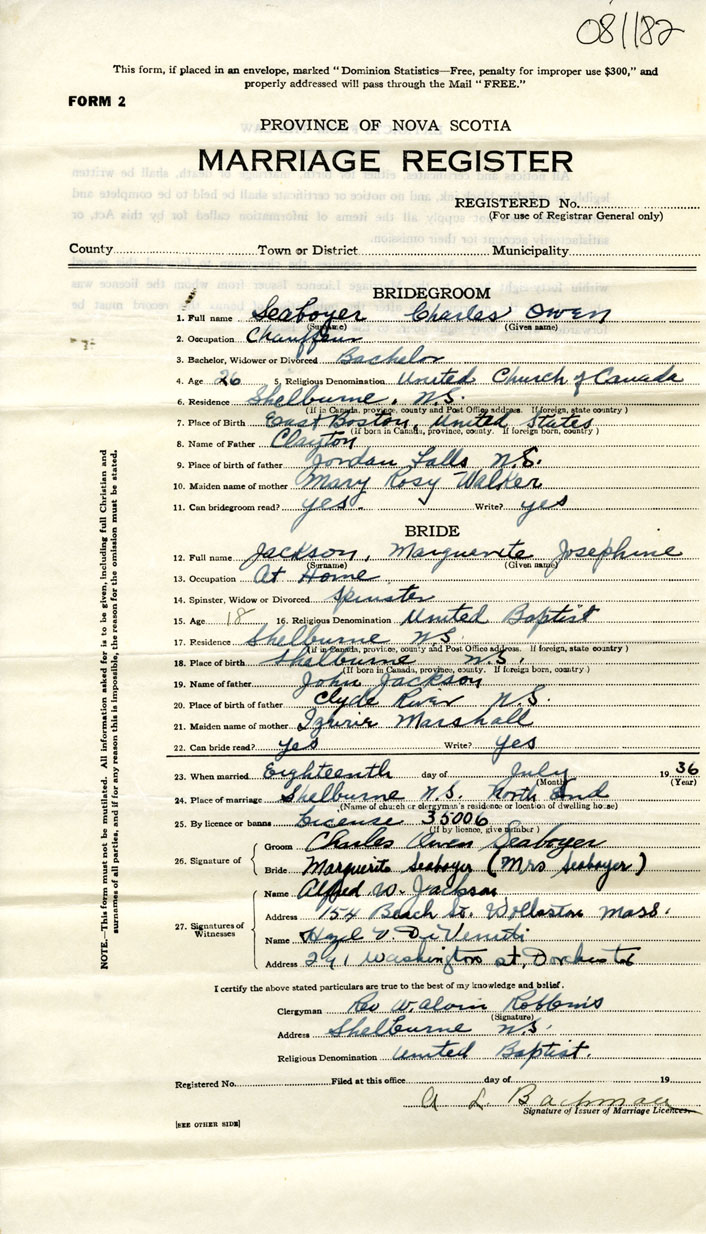 081182
This form, if placed in an envelope, marked "Dominion Statistics—Free, penalty for improper use $300," and
properly addressed will pass through the Mail "FREE."
FORM 2
PROVINCE OF NOVA SCOTIA
MARRIAGE REGISTER
REGISTERED No.
(For use of Registrar General only)
County Town or District Municipality
BRIDEGROOM
1. Full name Seaboyer Charles Owen
(Surname) (Given name)
2. Occupation Chauffeur
3. Bachelor, Widower or Divorced Bachelor
4. Age 26 5. Religious Denomination United Church of Canada
6. Residence Shelburne, N.S.
(If in Canada, province, county and Post Office address. If foreign, state country)
7. Place of Birth East Boston, United States
(If born in Canada, province, county. If foreign born, country)
8. Name of Father Clayton
9. Place of birth of father Jordan Falls N.S.
10. Maiden name of mother Mary Rosy Walker
11. Can bridegroom read? yes. Write? yes
BRIDE
12. Full name Jackson, Marguerite Josephine
(Surname) (Given name)
13. Occupation At Home
14. Spinster, Widow or Divorced Spinster
15. Age 18 16. Religious Denomination United Baptist
17. Residence Shelburne N.S.
(If in Canada, province, county and Post Office address. If foreign, state country)
18. Place of birth Shelburne N.S.
(If born in Canada, province, county. If foreign born, country)
19. Name of father John Jackson
20. Place of birth of father Clyde River N.S.
21. Maiden name of mother Marshall
22. Can bride read? yes Write? yes
23. When married Eighteenth day of July 1936
(Month) (Year)
24. Place of marriage Shelburne N.S. North End
(Name of church or clergyman's residence or location of dwelling house)
25. By licence or banns License 35006
(If by licence, give number)
26. Signature of
Groom Charles Owen Seaboyer
Bride Marguerite Seaboyer (Mrs Seaboyer)
27. Signatures of Witnesses
Name Alfred W. Jackson
Address 154 Beach St. Wollaston Mass.
Name Hazel V.
Address Washington st, Dorchester
I certify the above stated particulars are true to the best of my knowledge and belief.
Clergyman Rev W. Robbins
(Signature)
Address Shelburne N.S.
Religious Denomination United Baptist.
Registered No. Filed at this office day of 19
A L Bachman
Signature of Issuer of Marriage Licences
[SEE OTHER SIDE]
NOTE.—This form must not be mutilated. All information asked for is to be given, including full Christian and
surnames of all parties, and if for any reason this is impossible, the reason for the omission must be stated.